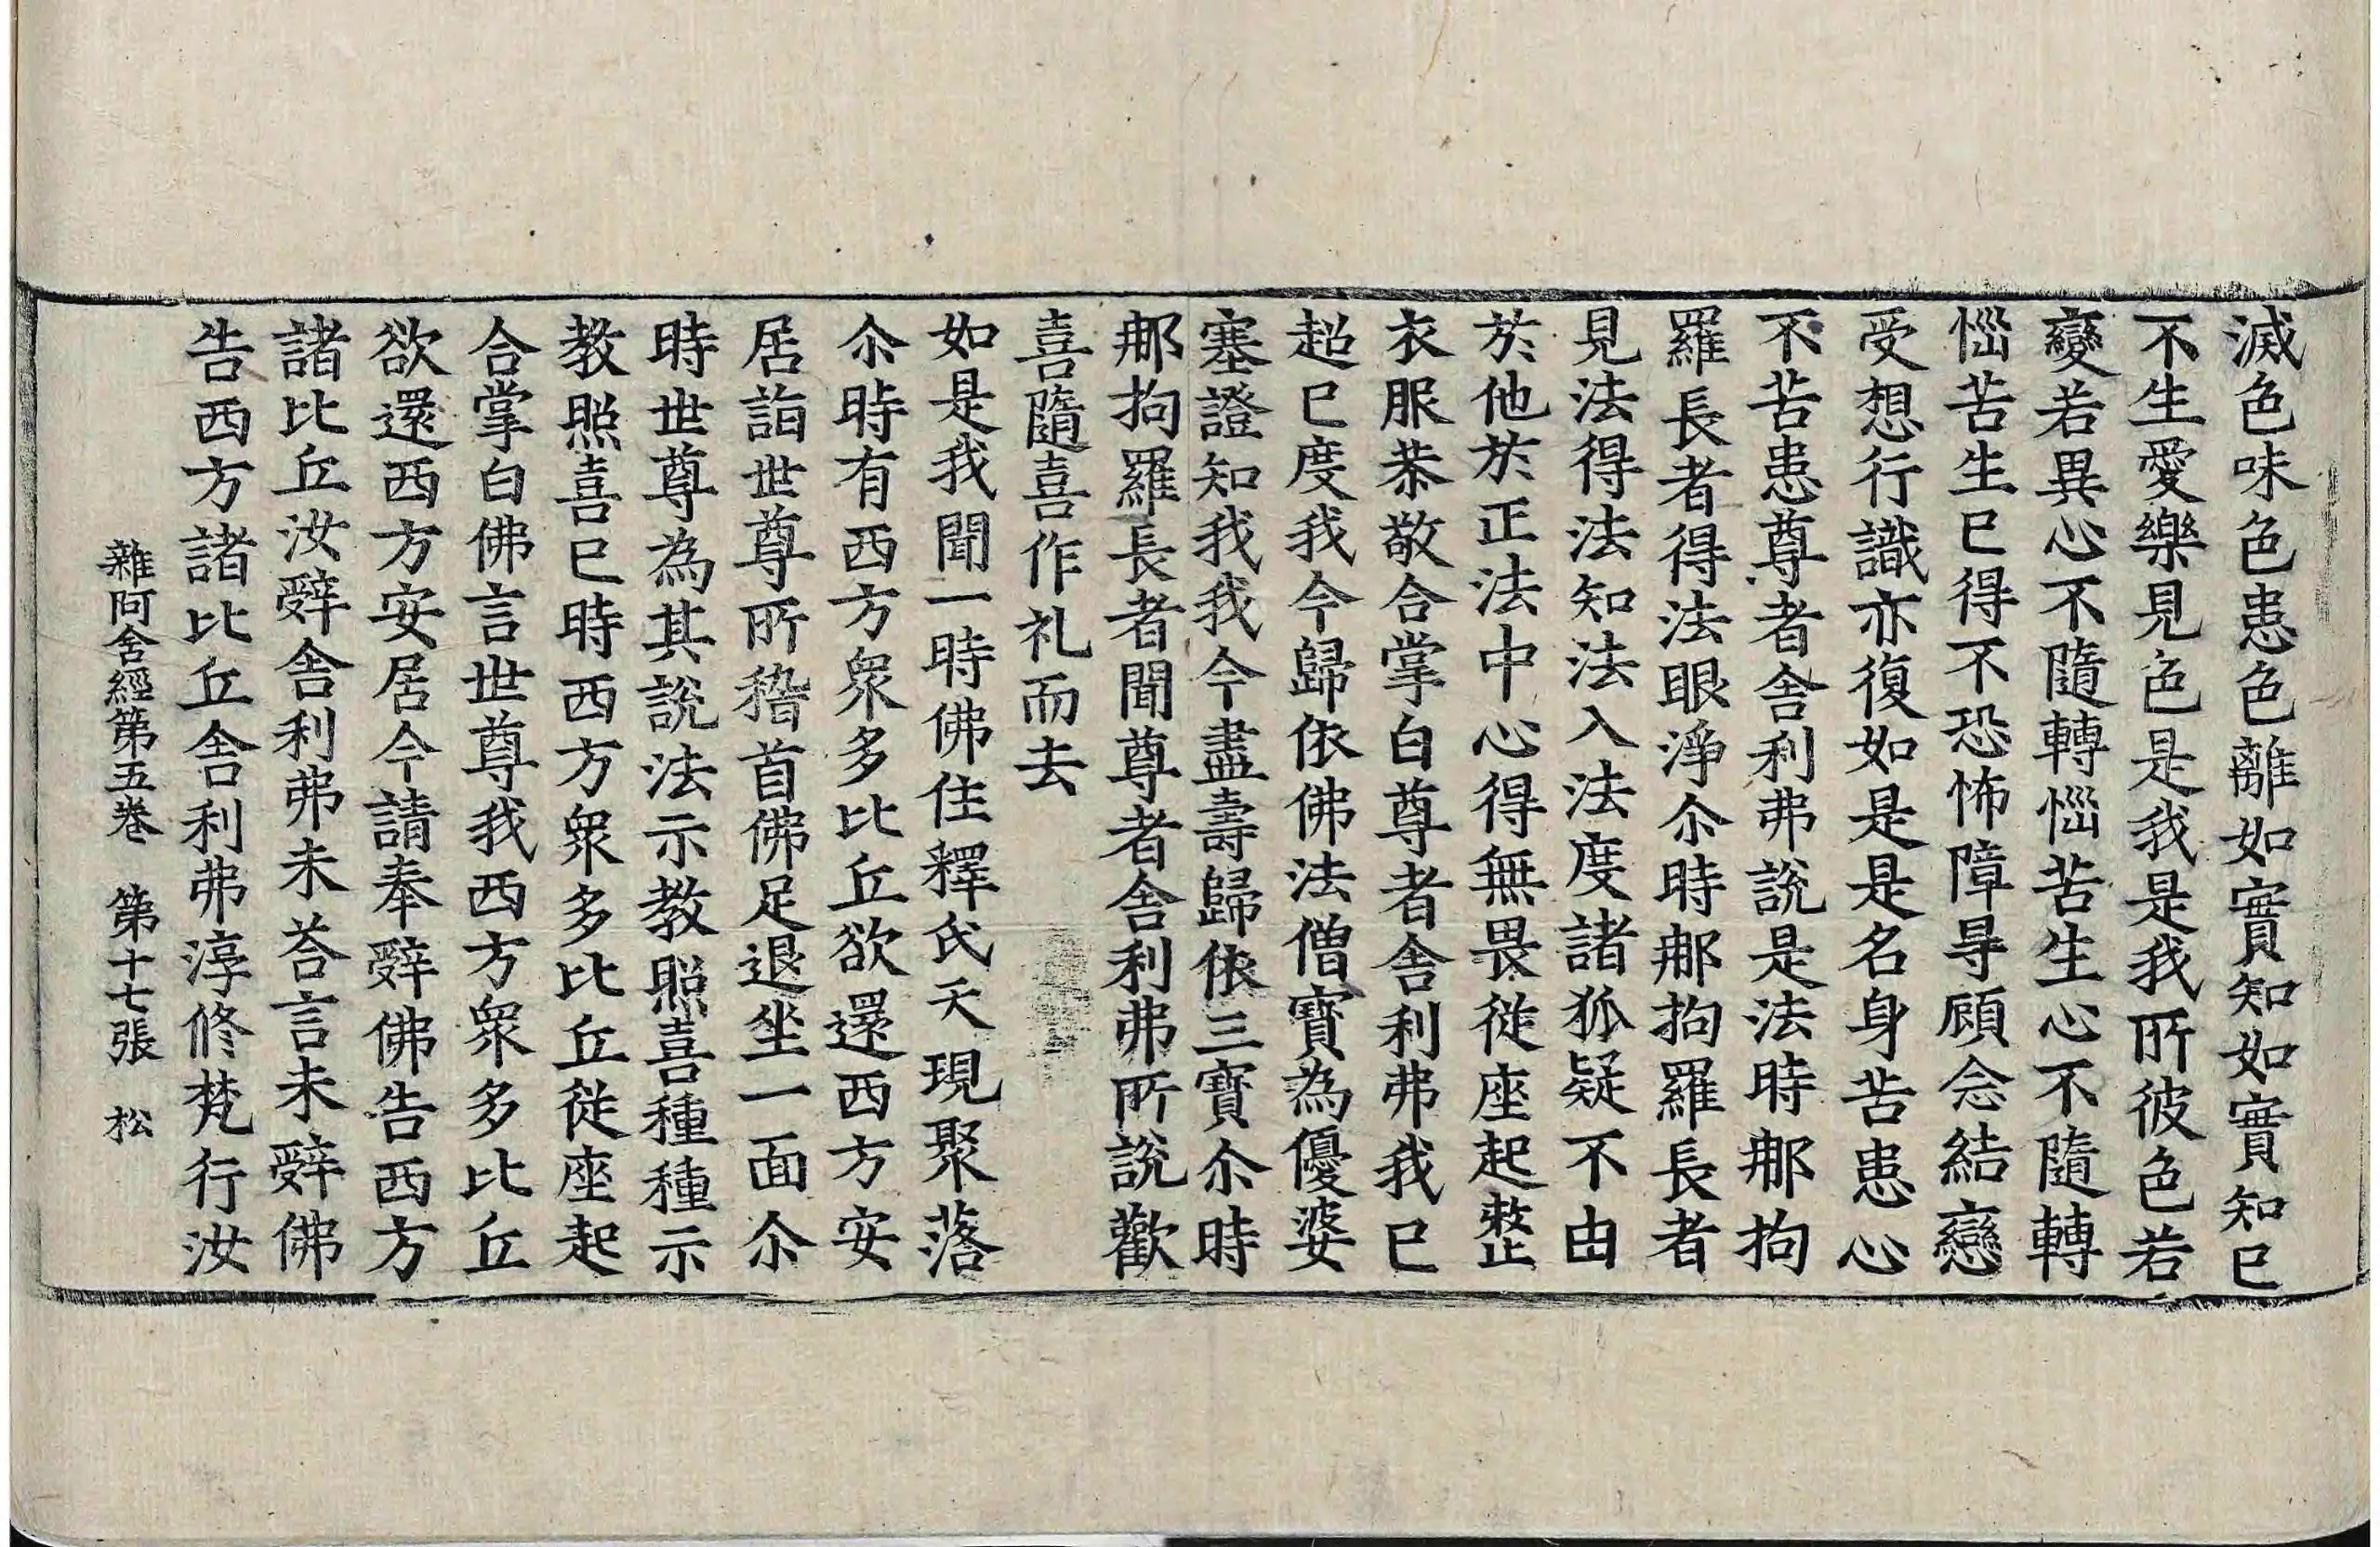 滅色味色患色離如實知如實知已
不生愛樂見色是我是我所彼色若
變若異心不隨轉惱苦生心不隨轉
惱苦生已得不恐怖障㝵顧念結戀
受想行識亦復如是是名身苦患心
不苦患尊者舍利弗說是法時那拘
羅長者得法眼淨尒時那拘羅長者
見法得法知法入法度諸狐疑不由
於他於正法中心得無畏從座起整
衣服恭敬合掌白尊者舍利弗我已
超已度我今歸依佛法僧寶為優婆
塞證知我我今盡壽歸依三寶尒時
那拘羅長者聞尊者舍利弗所說歡
喜隨喜作礼而去
如是我聞一時佛住釋氏天現聚落
尒時有西方衆多比丘欲還西方安
居詣世尊所稽首佛足退坐一面尒
時世尊為其說法示教照喜種種示
教照喜已時西方衆多比丘從座起
合掌白佛言世尊我西方衆多比丘
欲還西方安居今請奉辤佛告西方
諸比丘汝辤舍利弗未荅言未辤佛
告西方諸比丘舍利弗淳修梵行汝
雜阿含經第五卷 第十七張 松